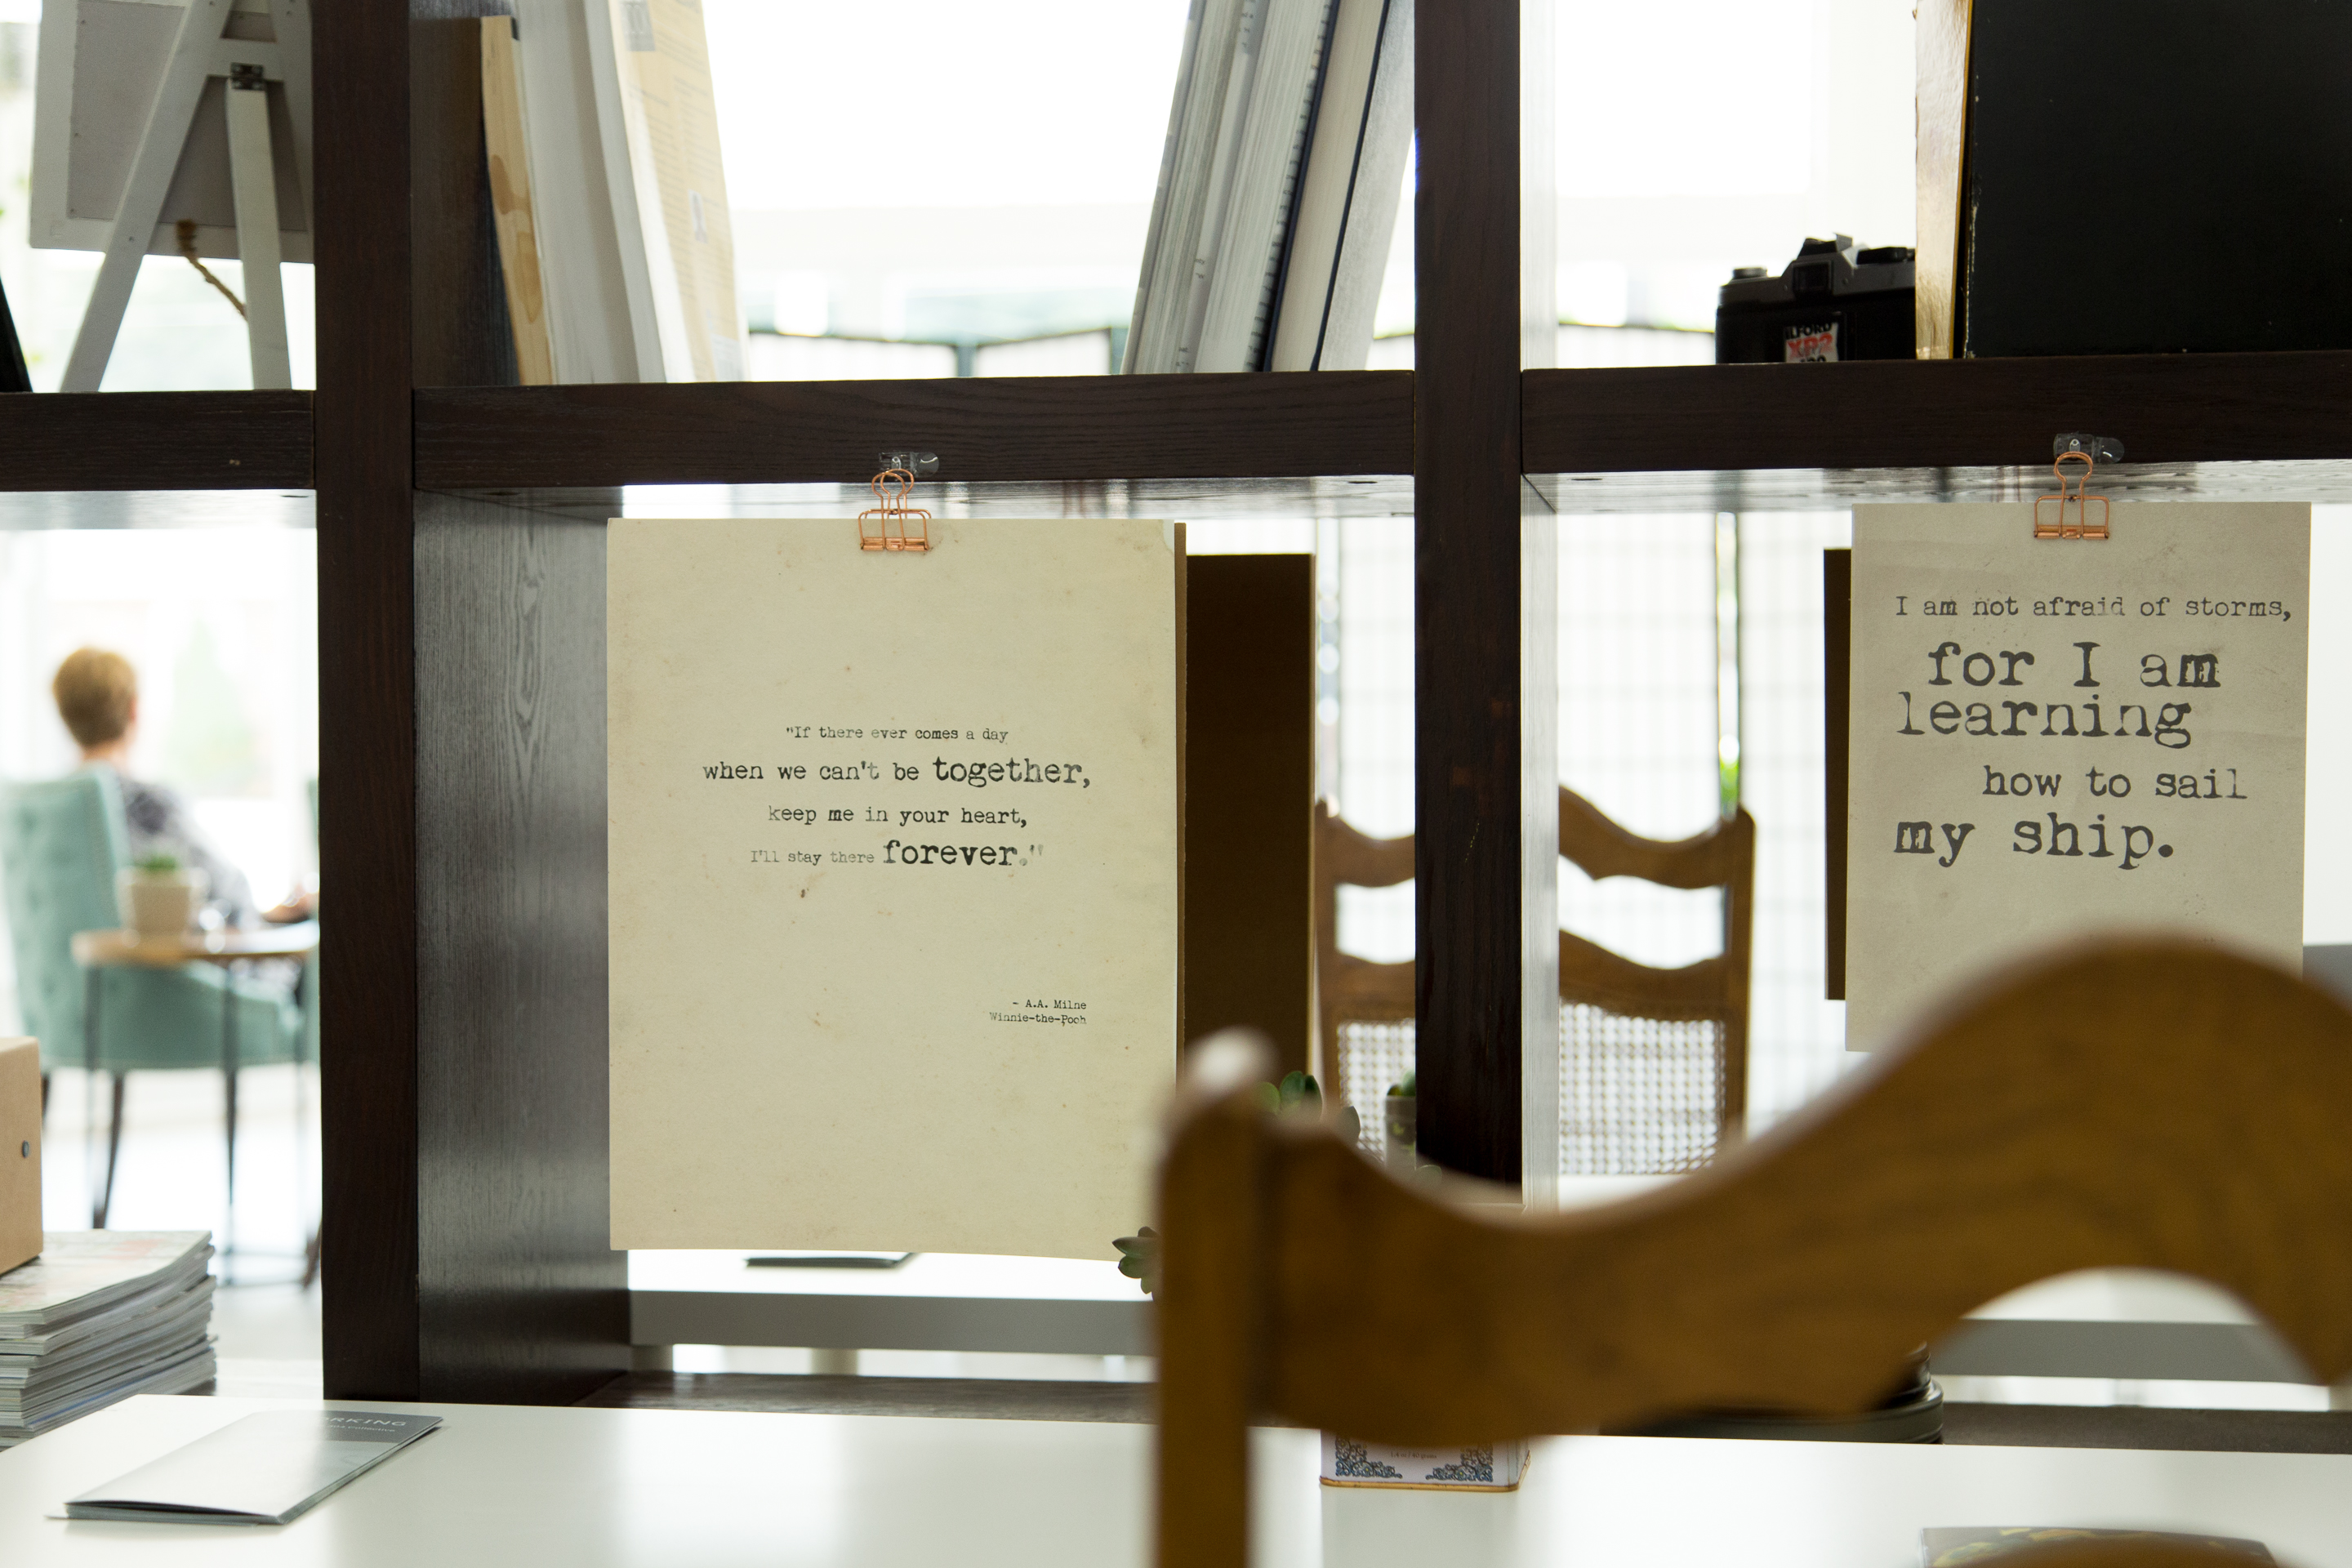 "If there ever comes a day
when we can't be together,
keep me in your heart,
I'll stay there forever."
- A.A. Milne
Winnie-the-Pooh
I am not afraid of storms,
for I am
learning
how to sail
my ship.
ILFORD
XP2